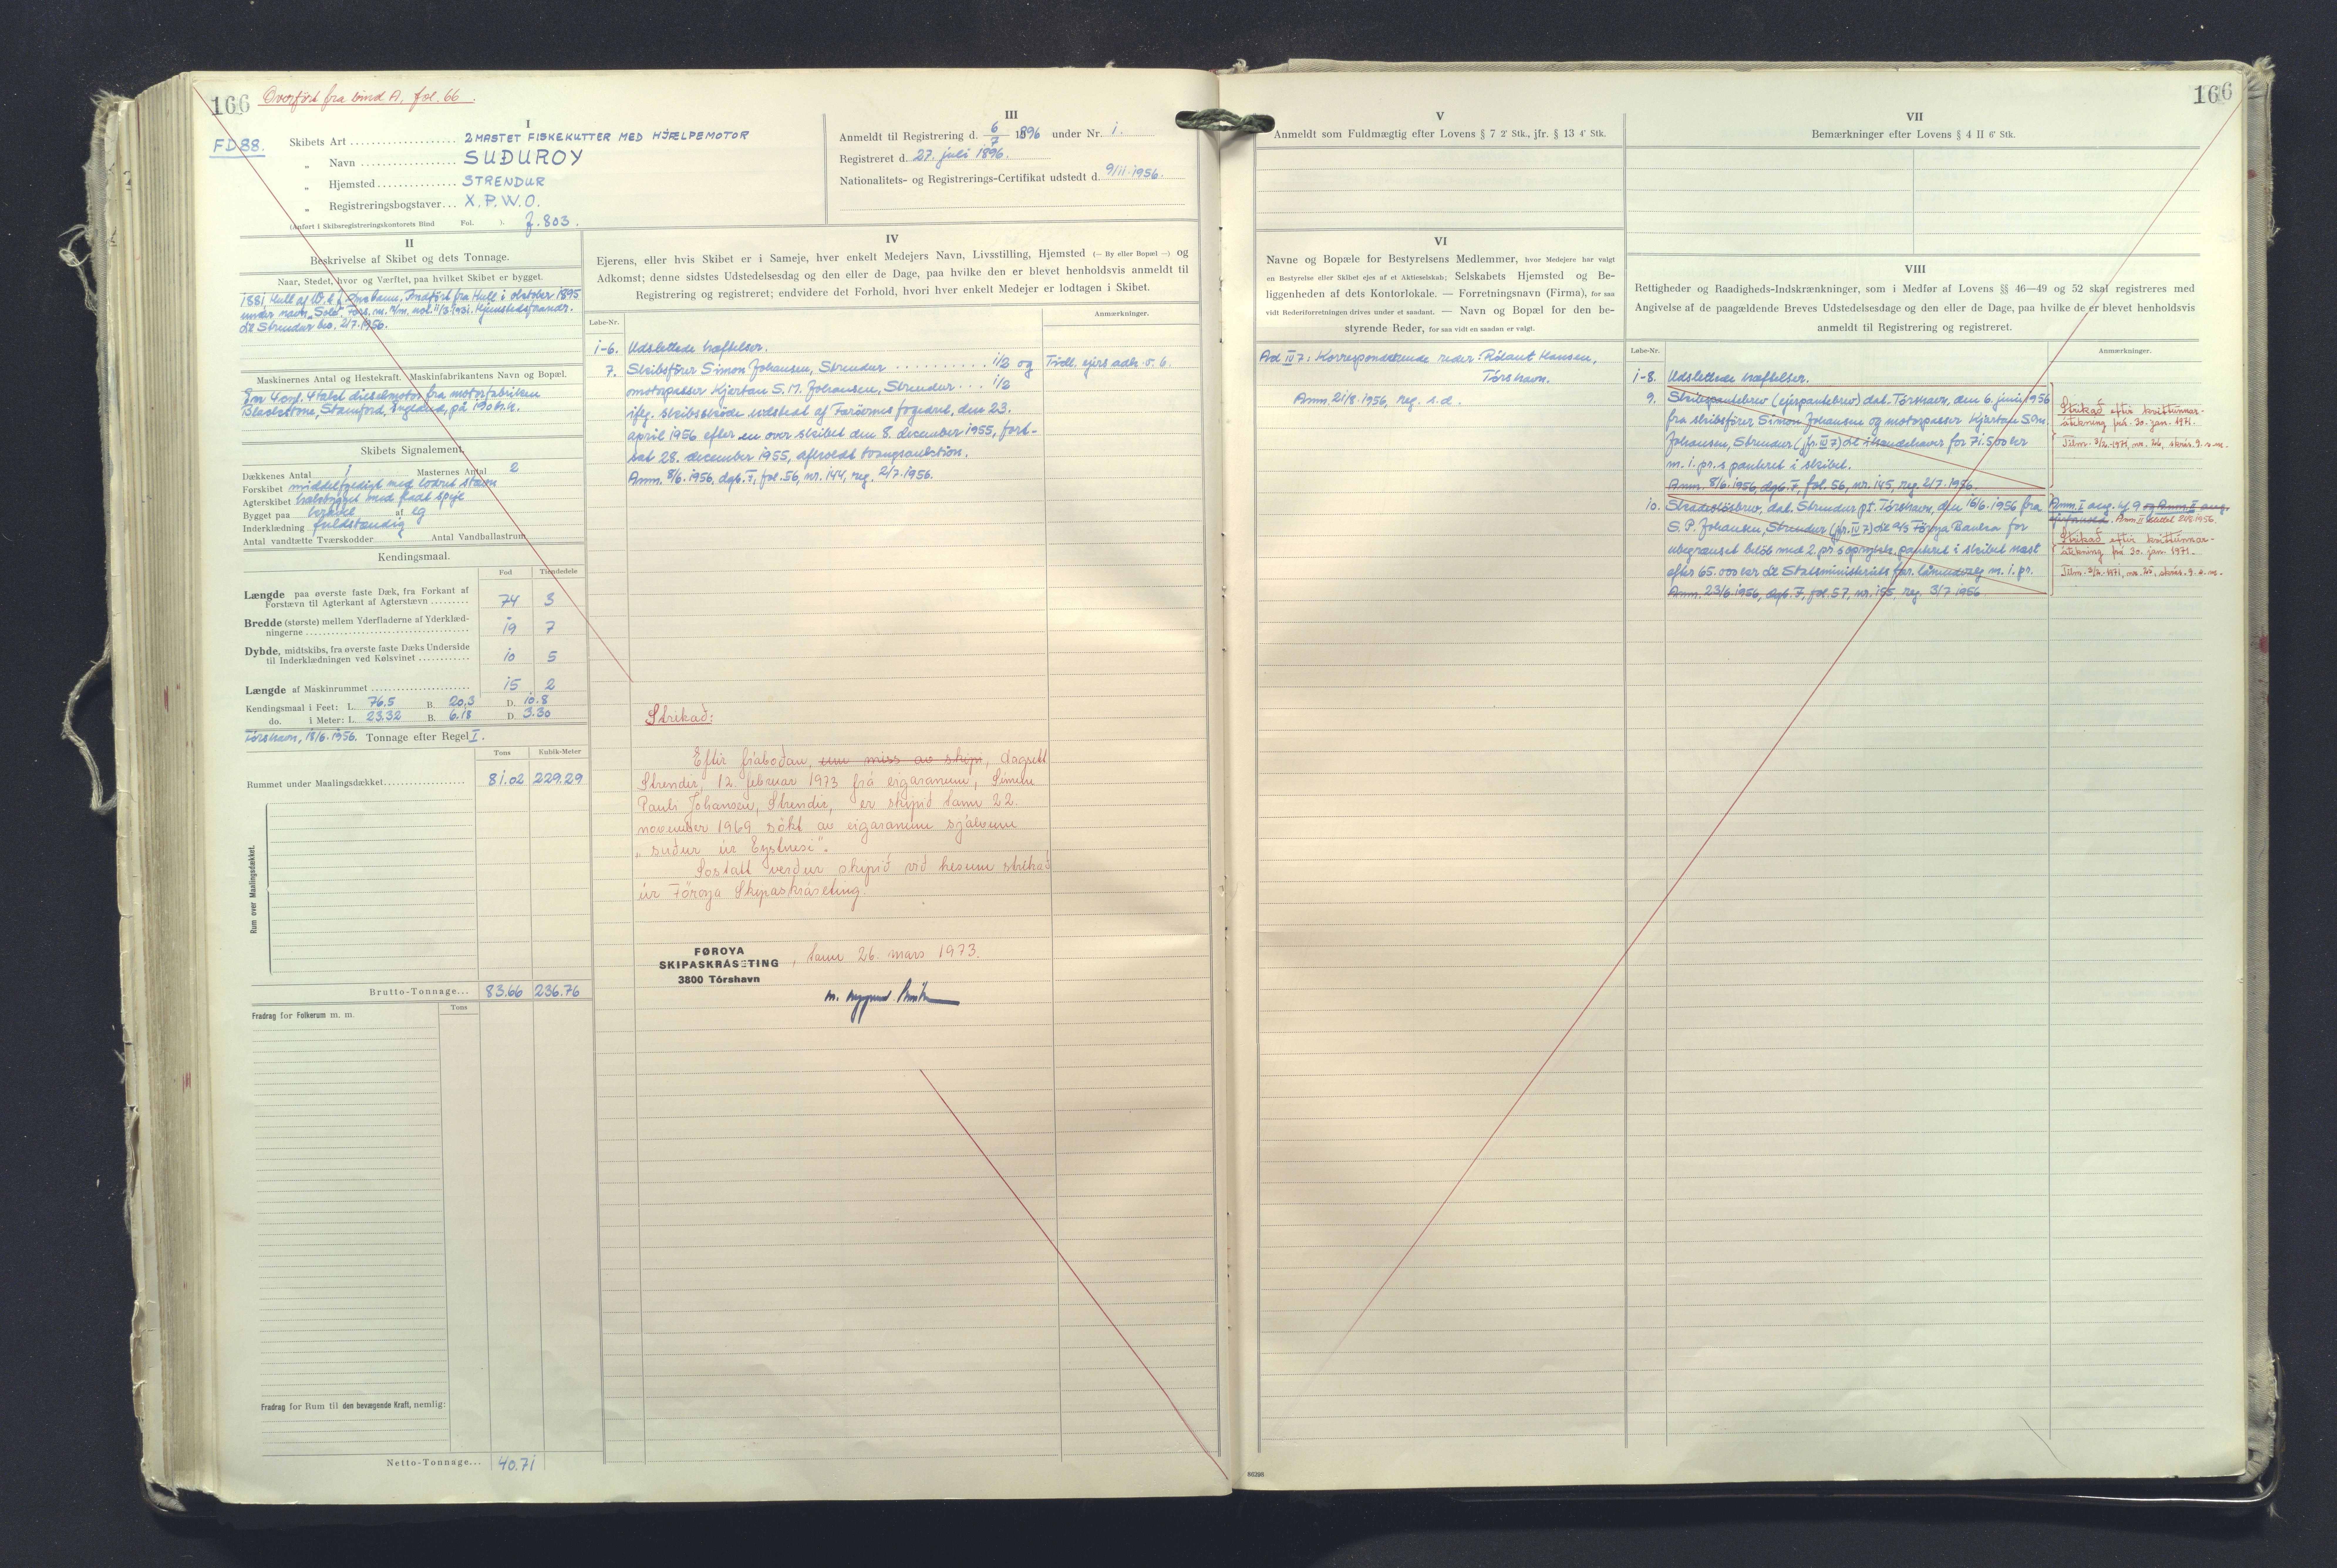 166 Overført fra bind A, fol. 66.
FD 88.
I
Skibets Art .................... 2 MASTET FISKEKUTTER MED HJÆLPEMOTOR
„ Navn .................. SUÐUROY
„ Hjemsted............... STRENDUR
„ Registreringsbogstaver... X.P.W.O.
(Anført i Skibsregistreringskontorets Bind Fol. ). J. 803.
III
Anmeldt til Registrering d. 6/7 1896 under Nr. 1.
Registreret d. 27. juli 1896.
Nationalitets- og Registrerings-Certifikat udstedt d. 9/11.1956.
II
Beskrivelse af Skibet og dets Tonnage.
Naar, Stedet, hvor og Værftet, paa hvilket Skibet er bygget.
1881 Hull af Indført fra Hull i oktober 1895
under navn „Sole". Hjemstedsforandr.
til Strendur bev. 2/7.1956.
Maskinernes Antal og Hestekraft. Maskinfabrikantens Navn og Bopæl.
Een 4 cyl. 4 takt dieselmotor fra motorfabriken
Blackstone, Stamford, England, på 190 h.k.
Skibets Signalement.
Dækkenes Antal 1 Masternes Antal 2
Forskibet middelfyldigt med lodret stævn
Agterskibet halvbygget med fladt spejl
Bygget paa kravel af eg
Inderklædning fuldstændig
Antal vandtætte Tværskodder Antal Vandballastrum
Kendingsmaal.
Fod Tiendedele
Længde paa øverste faste Dæk, fra Forkant af
Forstævn til Agterkant af Agterstævn ......... 74 3
Bredde (største) mellem Yderfladerne af Yderklæd-
ningerne .................................. 19 7
Dybde, midtskibs, fra øverste faste Dæks Underside
til Inderklædningen ved Kølsvinet ............ 10 5
Længde af Maskinrummet ....................... 15 2
Kendingsmaal i Feet: L. 76.5 B. 20.3 D. 10.8
do. i Meter: L. 23.32 B. 6.18 D. 3.30
Tórshavn, 18/6.1956. Tonnage efter Regel I.
Tons Kubik-Meter
Rummet under Maalingsdækket.................. 81.02 229.29
Rum over Maalingsdækket.
Brutto-Tonnage... 83.66 236.76
Fradrag for Folkerum m. m. Tons
Fradrag for Rum til den bevægende Kraft, nemlig:
Netto-Tonnage... 40.71
IV
Ejerens, eller hvis Skibet er i Sameje, hver enkelt Medejers Navn, Livsstilling, Hjemsted (— By eller Bopæl —) og
Adkomst; denne sidstes Udstedelsesdag og den eller de Dage, paa hvilke den er blevet henholdsvis anmeldt til
Registrering og registreret; endvidere det Forhold, hvori hver enkelt Medejer er lodtagen i Skibet.
Løbe-Nr. Anmærkninger.
1-6. Udslettede hæftelser.
7. Skibsfører Simon Johansen, Strendur .......... 1/2 og Tidl. ejers adk. s. 6.
motorpasser Kjartan S.M. Johansen, Strendur ... 1/2
ifлg. skibsskøde udstedt af Færøernes fogedret, den 23.
april 1956 efter en over skibet den 8. december 1955, fort-
sat 28. december 1955, afholdt tvangsauktion.
Anm. 8/6.1956, dgb. F, fol. 56, nr. 144, reg. 2/7.1956.
Strikað:
Eftir fráboðan, um miss av skipi, dagsett
Strendir, 12. februar 1973 frá eigaranum, Simun
Pauli Johansen, Strendir, er skipið tann 22.
november 1969 søkt av eigaranum sjálvum
„suður úr Eystnesi".
Sostatt verður skipið við hesum strikað
úr Føroya Skipaskráseting.
FØROYA
SKIPASKRÁSETING
3800 Tórshavn
, tann 26. mars 1973.
V
Anmeldt som Fuldmægtig efter Lovens § 7 2' Stk., jfr. § 13 4' Stk.
VI
Navne og Bopæle for Bestyrelsens Medlemmer, hvor Medejere har valgt
en Bestyrelse eller Skibet ejes af et Aktieselskab; Selskabets Hjemsted og Be-
liggenheden af dets Kontorlokale. — Forretningsnavn (Firma), for saa
vidt Rederiforretningen drives under et saadant. — Navn og Bopæl for den be-
styrende Reder, for saa vidt en saadan er valgt.
Ad IV 7: Korresponderende reder: Rólant Hansen,
Tórshavn.
Anm. 21/8.1956, reg. s.d.
86295
166
VII
Bemærkninger efter Lovens § 4 II 6' Stk.
VIII
Rettigheder og Raadigheds-Indskrænkninger, som i Medfør af Lovens §§ 46—49 og 52 skal registreres med
Angivelse af de paagældende Breves Udstedelsesdage og den eller de Dage, paa hvilke de er blevet henholdsvis
anmeldt til Registrering og registreret.
Løbe-Nr. Anmærkninger.
1-8. Udslettede hæftelser.
9. Skibspantebrev (ejerpantebrev) dat. Tórshavn, den 6. juni 1956
fra skibsfører Simon Johansen og motorpasser Kjartan S.M.
Johansen, Strendur (jfr. IV 7) til ihændehaver for 71.500 kr
m. 1. pr.s panteret i skibet.
Anm. 8/6.1956, dgb. F, fol. 56, nr. 145, reg. 2/7.1956.
Strikað eftir kvittunnar-
átekning frá 30. jan. 1971.
Tilm. 3/2.1971, nr. 26, skrás. s.m.
10. Skadesløsbrev, dat. Strendur pt. Tórshavn, den 16/6.1956 fra
S. P. Johansen, Strendur (jfr. IV 7) til a/s Føroya Banka for
ubegrænset beløb med 2. pr.s oprykk. panteret i skibet næst
efter 65.000 kr til Statsministeriets fær. lånudvalg m. 1. pr.
Anm. 23/6.1956, dgb. F, fol. 57, nr. 155, reg. 3/7.1956.
Strikað eftir kvittunnar-
átekning frá 30. jan. 1971.